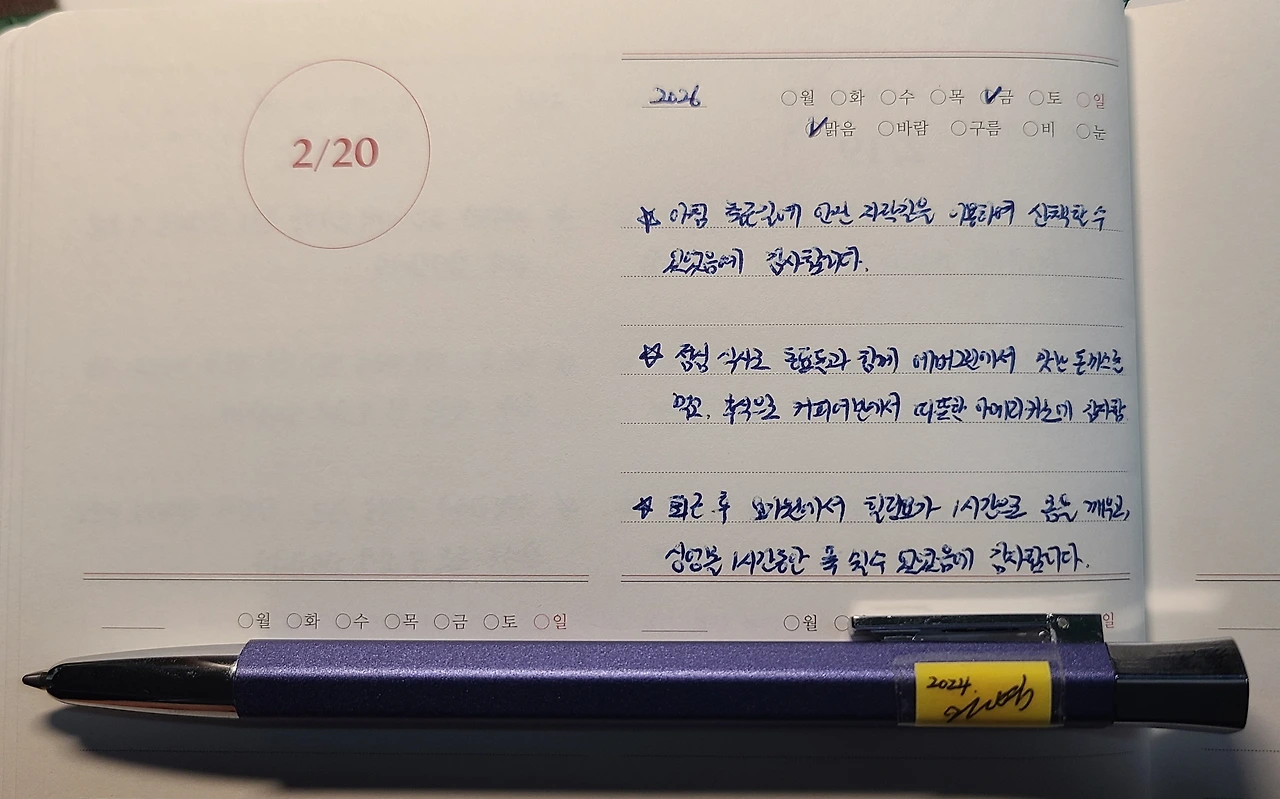 2/20
2026 월 화 수 목 금 토 일
맑음 바람 구름 비 눈
아침 출근길에 안전 산책할 수
있었음에 감사합니다.
점심 식사로 함께 에버그린에서 맛난 돈까스를
먹고, 후식으로 커피에반에서 따뜻한 아메리카노에 감사함
퇴근 후 요가원에서 힐링요가 1시간으로 몸을 깨우고,
1시간동안 푹 쉴 수 있었음에 감사합니다.
월 화 수 목 금 토 일
월 일
2024.